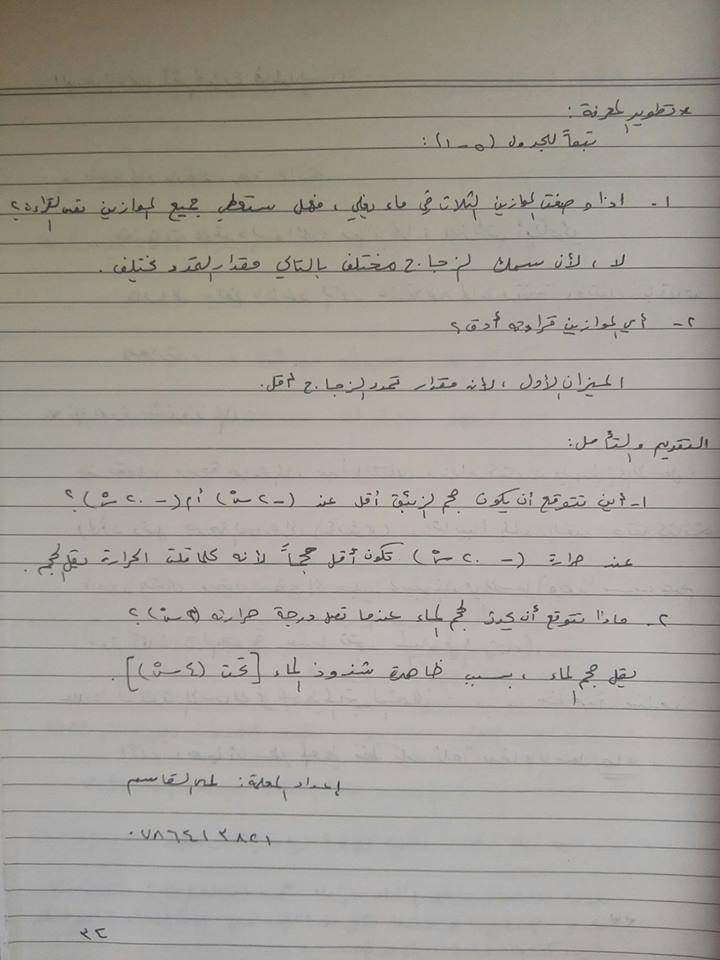 * تطوير المعرفة :
تبعاً للجدول (٥-١) :
١- اذا وضعت الموازين الثلاث في ماء يغلي ، فهل ستعطي جميع الموازين نفس القراءة ؟
لا ، لأن سمك الزجاج مختلف بالتالي مقدار التمدد مختلف .
٢- أي الموازين قراءته أدق ؟
الميزان الأول ، لأنه مقدار تمدد الزجاج أقل .
التقويم والتأمل :
١- أين تتوقع أن يكون حجم الزئبق أقل عند (-٢ سْ) أم (-٢٠ سْ) ؟
عند حرارة (-٢٠ سْ) تكون أقل حجماً لأنه كلما قلت الحرارة يقل الحجم .
٢- ماذا تتوقع أن يحدث لحجم الماء عندما تصل درجة حرارته ؟
يقل حجم الماء ، بسبب ظاهرة شذوذ الماء [تحت (٤ سْ)] .
إعداد المعلمة : لمى القاسم
٣٢